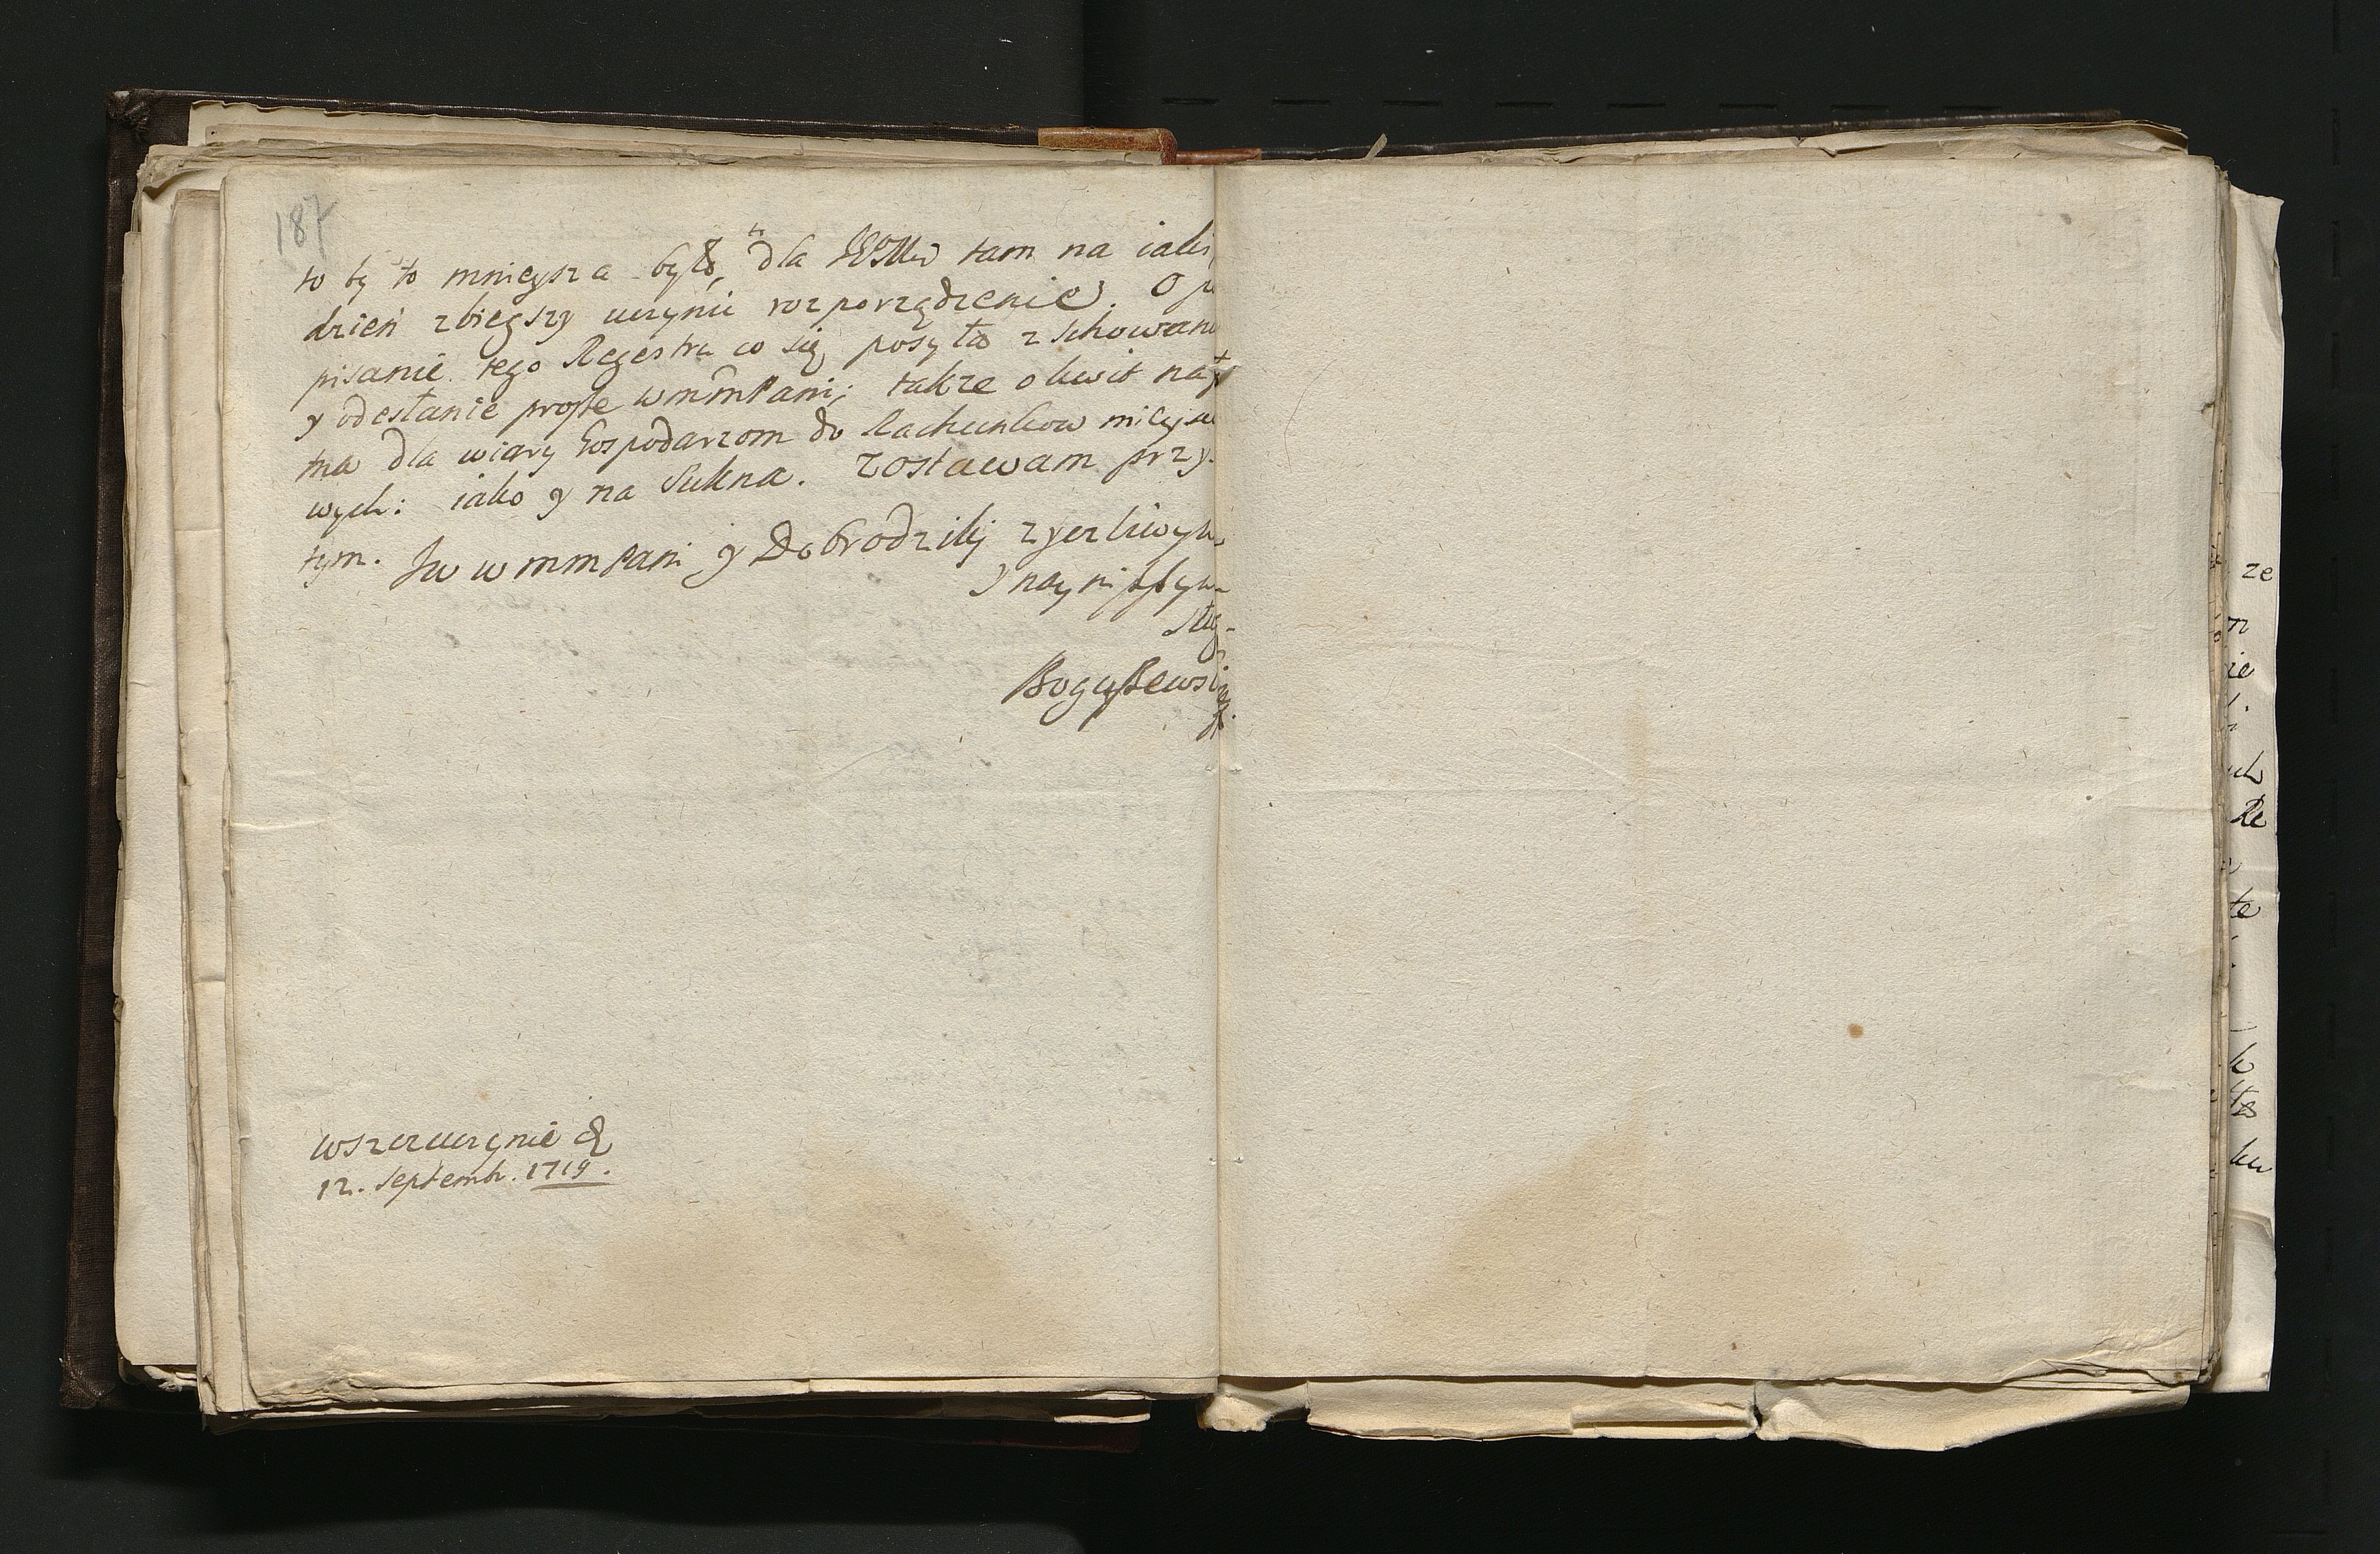 187
to by to mnieysza było, dla tam na iaki
dzień zbiegszy uczynić rozporządzenie. O p
pisanie tego Regestru co się posyła z schowan
y odesłanie proszę wmmPani; także o kwit na
ma dla wiary Gospodarzom do Rachunkow mieysc
wych: iako y na Sukna. Zostawam przy
tym.
Jw wmmPani y Dobrodziki zyczliwym
y nayniższym
Sług
Boguszewski
ze
n
ie
Re
te
ku
12. Septemb. 1719.